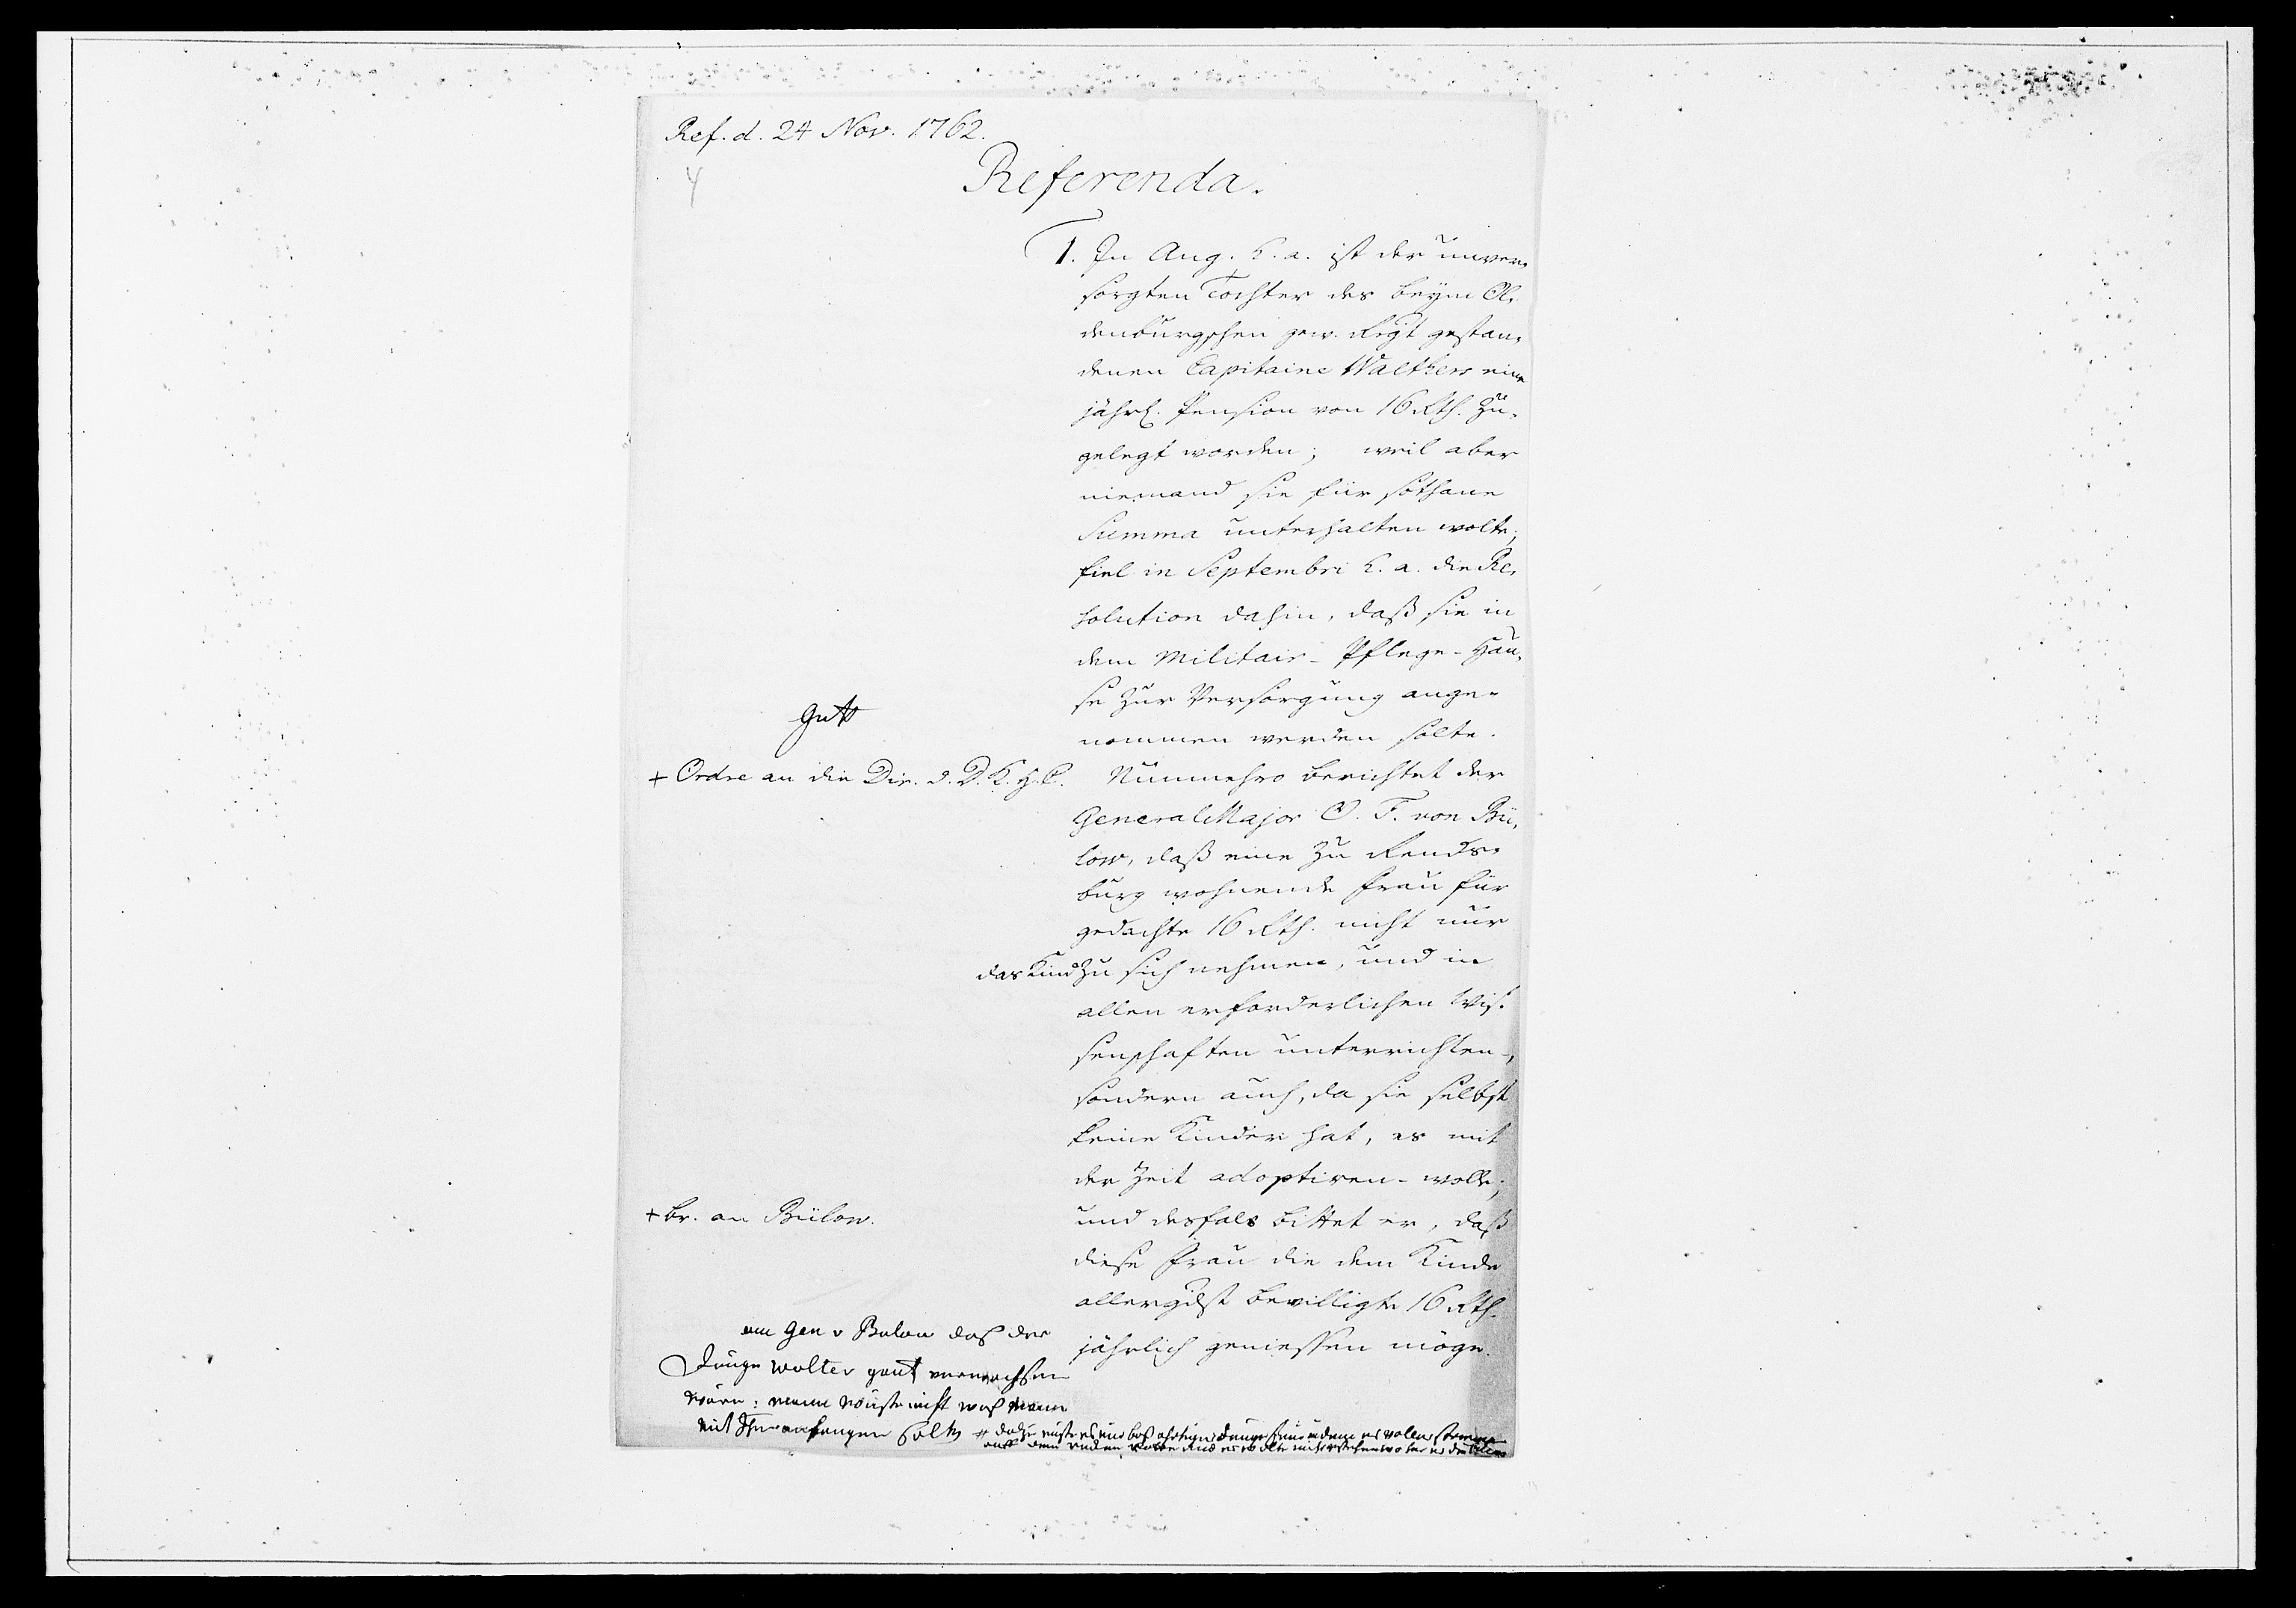 Ref. d. 24 Nov. 1762.
4
Referenda.
1. In Aug. h. a. ist der unver-
sorgten Tochter des beym Ol-
denburgschen gew. Regt gestan-
denen Capitaine Walthers eine
jährl. Pension von 16 Rth. zu-
gelegt worden; weil aber
niemand sie für sothane
Summa unterhalten wolte,
fiel in Septembri h. a. die Re-
solution dahin, daß sie in
dem Militair-Pflege-Hau-
se zur Versorgung ange-
nommen werden solte.
gutt
+ Ordre an die Dir. d. D. K. H. C.
Nunmehro berichtet der
GeneralMajor C. F. von Bü-
low, daß eine zu Rends-
burg wohnende Frau für
gedachte 16 Rth. nicht nur
das Kind zu sich nehmen, und in
allen erforderlichen Wis-
senschaften unterrichten-,
sondern auch, da sie selbst
keine Kinder hat, es mit
der Zeit adoptiren- wolle;
und desfals bittet er, daß
diese Frau die dem Kinde
allergdst bewilligte 16 Rth.
jährlich geniessen möge.
+ br. an Bülow.
am Gen v Bulow daß der
Junge Wolter gantz verwachsen
wäre: mann wüste nicht was Mann
mit Ihm anfangen solte